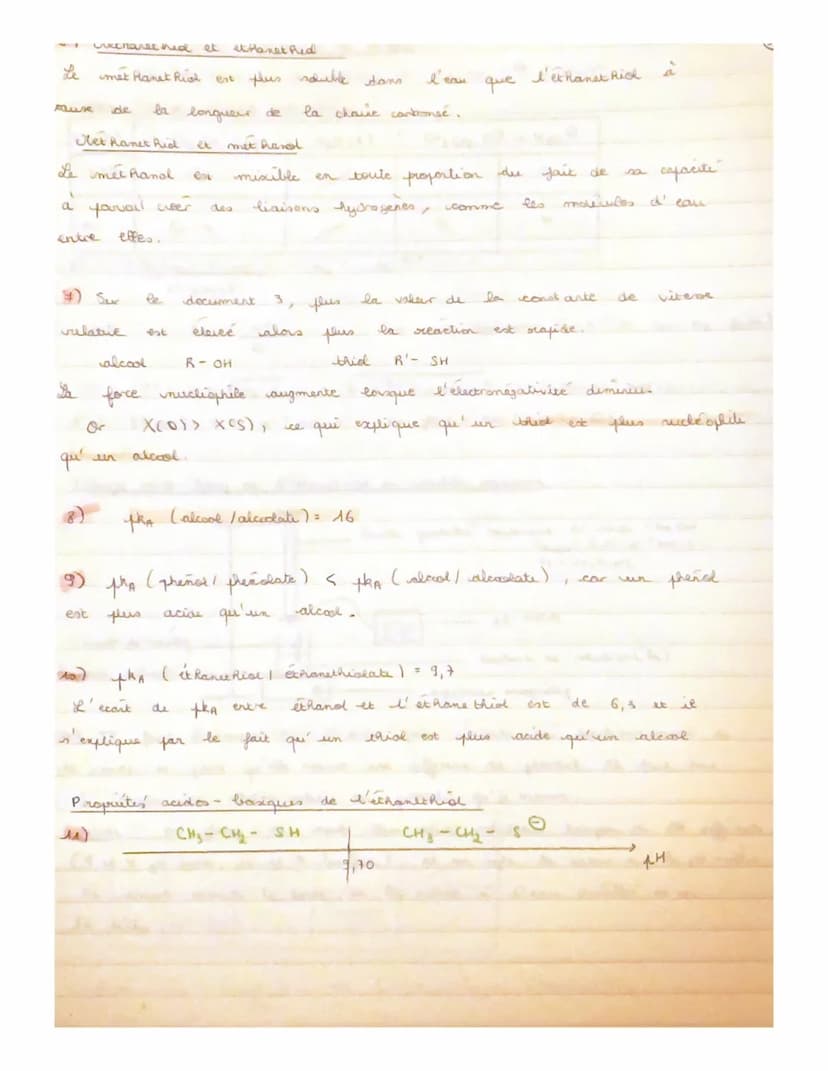 et éthanethiol
Le méthanethiol est plus soluble dans l'eau que l'éthanethiol à
cause de la longueur de la chaîne carbonsé.
Méthanethiol et méthanol
Le méthanol est mixible en toute proportion du fait de sa capacité
à pouvoir créer des liaisons hydrogènes, comme les molécules d'eau
entre elles.
7) Sur le document 3, plus la valeur de la constante de vitesse
relative est élevée alors plus la réaction est rapide.
alcool R-OH thiol R'-SH
La force nucléophile augmente lorsque l'électronégativité diminue.
Or X(O) > X(S), ce qui explique qu'un thiol est plus nucléophile
qu'un alcool.
8) pkA (alcool/alcoolate) = 16
9) pkA (phénol/phénolate) < pkA (alcool/alcoolate), car un phénol
est plus acide qu'un alcool.
10) pkA (éthanethiol/éthanethiolate) = 9,7
L'écart de pkA entre éthanol et l'éthanethiol est de 6,3 et il
s'explique par le fait qu'un thiol est plus acide qu'un alcool
Propriétés acidos-basiques de l'éthanethiol
11) CH3-CH2-SH CH3-CH2-S⊖
9,70 pH